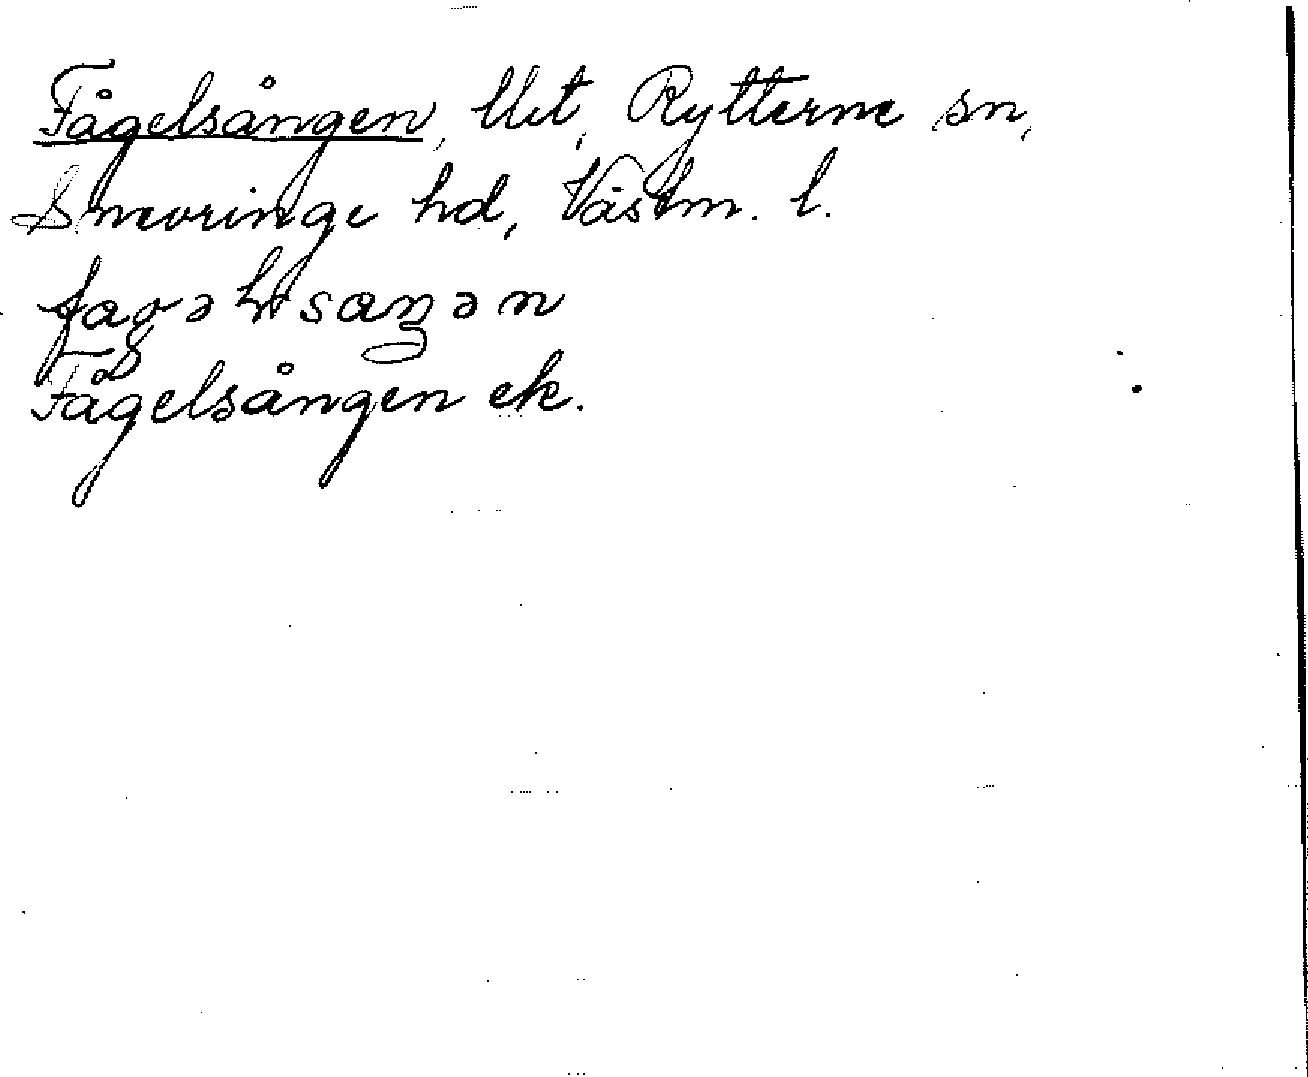 Fågelsången, Utt, Rytterne sn,
Snevringe hd, Västm. l.
Fågelsången ek.